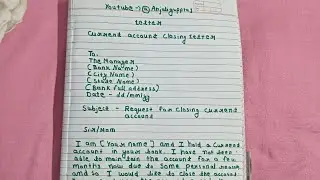 Youtube -> @Anjaligupta01
Letter
Current account closing letter
To,
The Manager
(Bank Name)
(City Name)
(State Name)
(Bank full address)
Date - dd/mm/yy
Subject - Request for closing current
account
Sir/Mam
I am [Your name] and I hold a current
account in your book. I have not been
able to maintain the account for a few
months now due to some personal reasons
and so I would like to close the account.